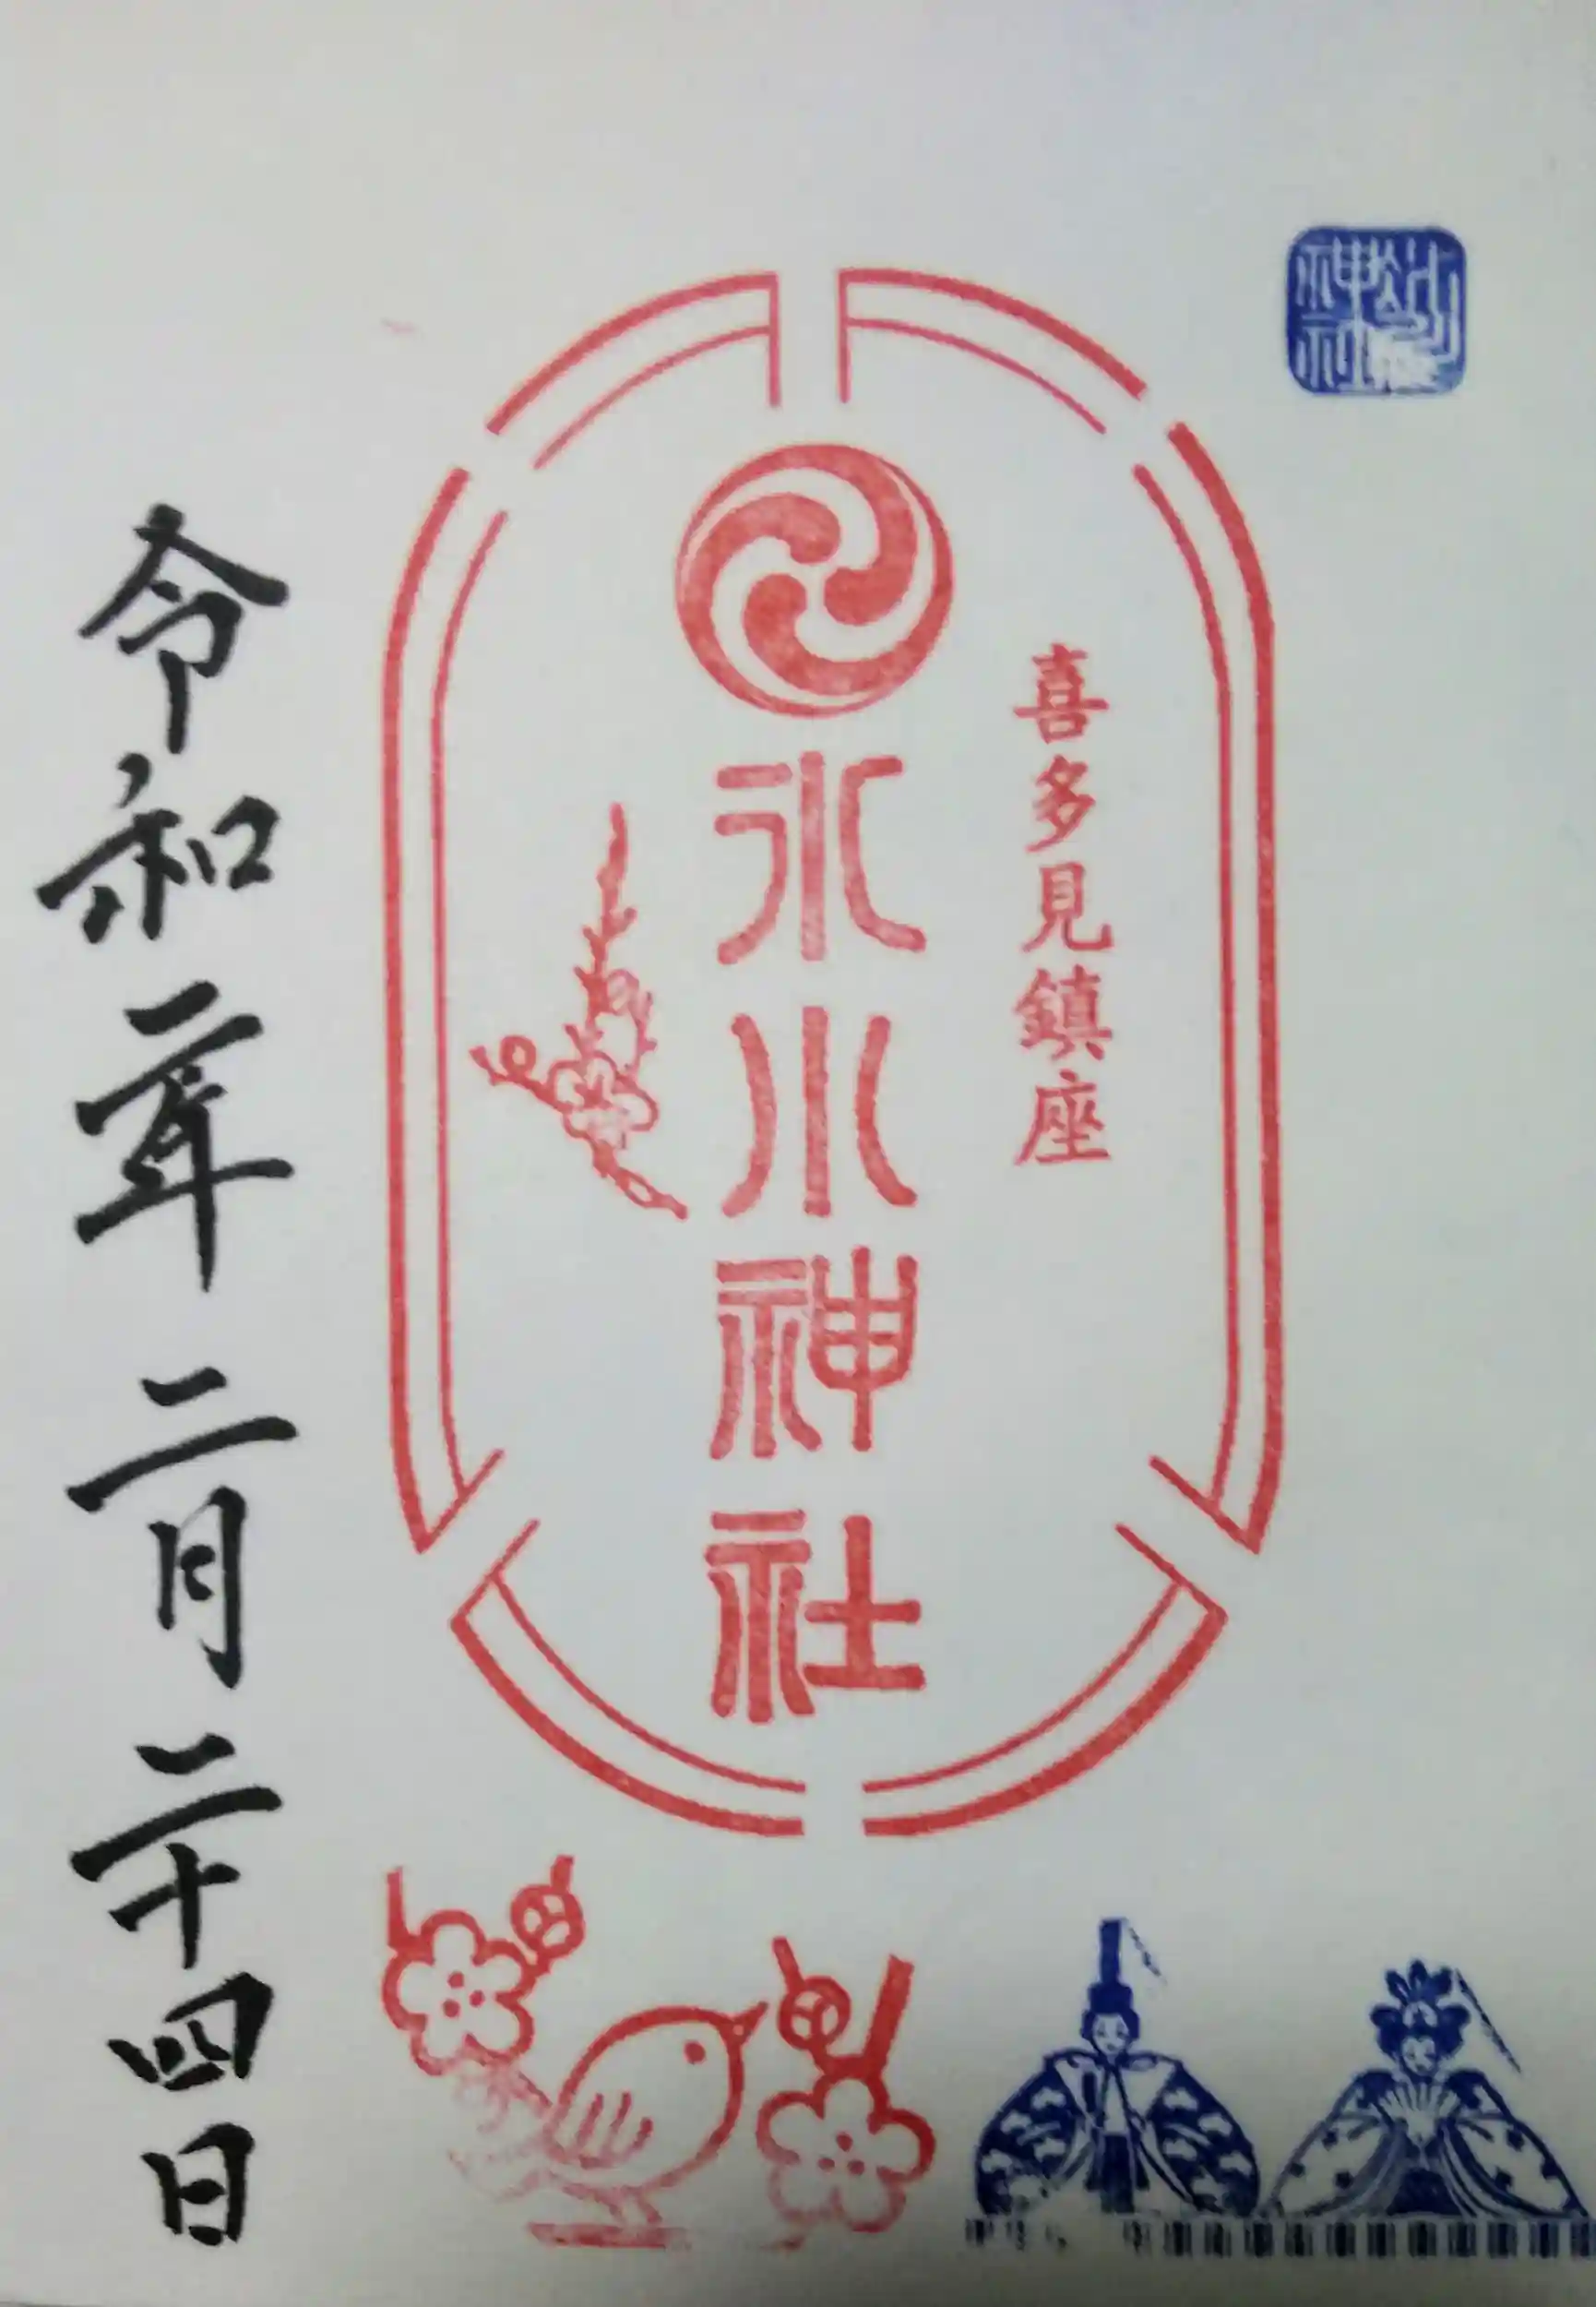 神社
喜多見鎮座
氷川神社
令和二年二月二十四日